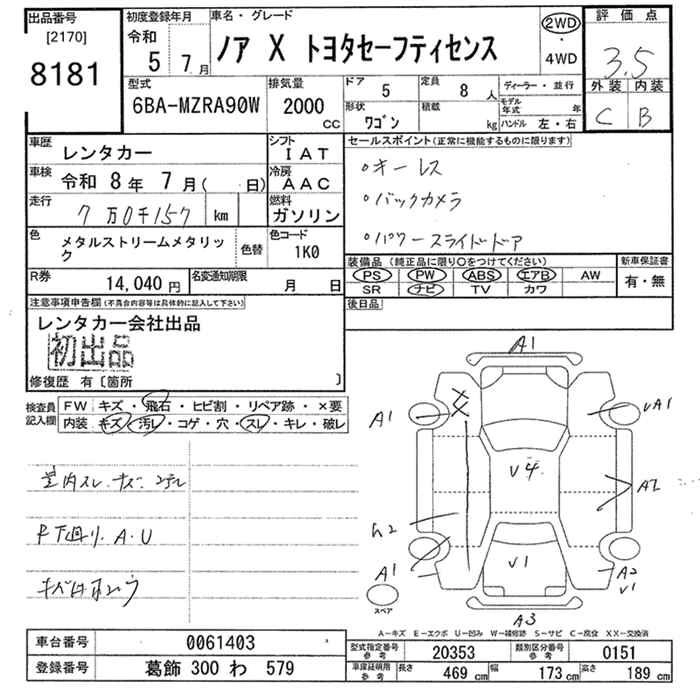 出品番号
[2170]
8181
初度登録年月
令和
5 7月
車名・グレード
ノア X トヨタセーフティセンス
2WD
・
4WD
評価点
3.5
外装 内装
C B
型式
6BA-MZRA90W
排気量
2000
cc
ドア 5
定員 8人
形状 ワゴン
積載 kg
ディーラー・並行
モデル年式 年
ハンドル 左・右
車歴
レンタカー
シフト
IAT
車検
令和 8年 7月( 日)
冷房
AAC
走行
7万0千157 km
燃料
ガソリン
色
メタルストリームメタリック
色替
色コード
1K0
R券
14,040円
名変通知期限
月 日
セールスポイント(正常に機能するものに限ります)
・キーレス
・バックカメラ
・パワースライドドア
装備品 (純正品に限り○をつけてください)
PS PW ABS エアB AW
SR ナビ TV カワ
新車保証書
有・無
後日品
注意事項申告欄(不具合内容等は具体的に記入して下さい)
レンタカー会社出品
初出品
修復歴 有〔箇所 〕
検査員
記入欄
FW キズ・飛石・ヒビ割・リペア跡・×要
内装 キズ・汚レ・コゲ・穴・スレ・キレ・破レ
下廻り. A. U
A1
A1
UA1
U4
A2
A1
U1
A2
U1
A3
スペア
A-キズ E-エクボ U-凹み W-補修跡 S-サビ C-腐食 XX-交換済
車台番号
0061403
登録番号
葛飾 300 わ 579
型式指定番号
参考
20353
類別区分番号
参考
0151
車庫証明用
参考
長さ 469 cm
幅 173 cm
高さ 189 cm